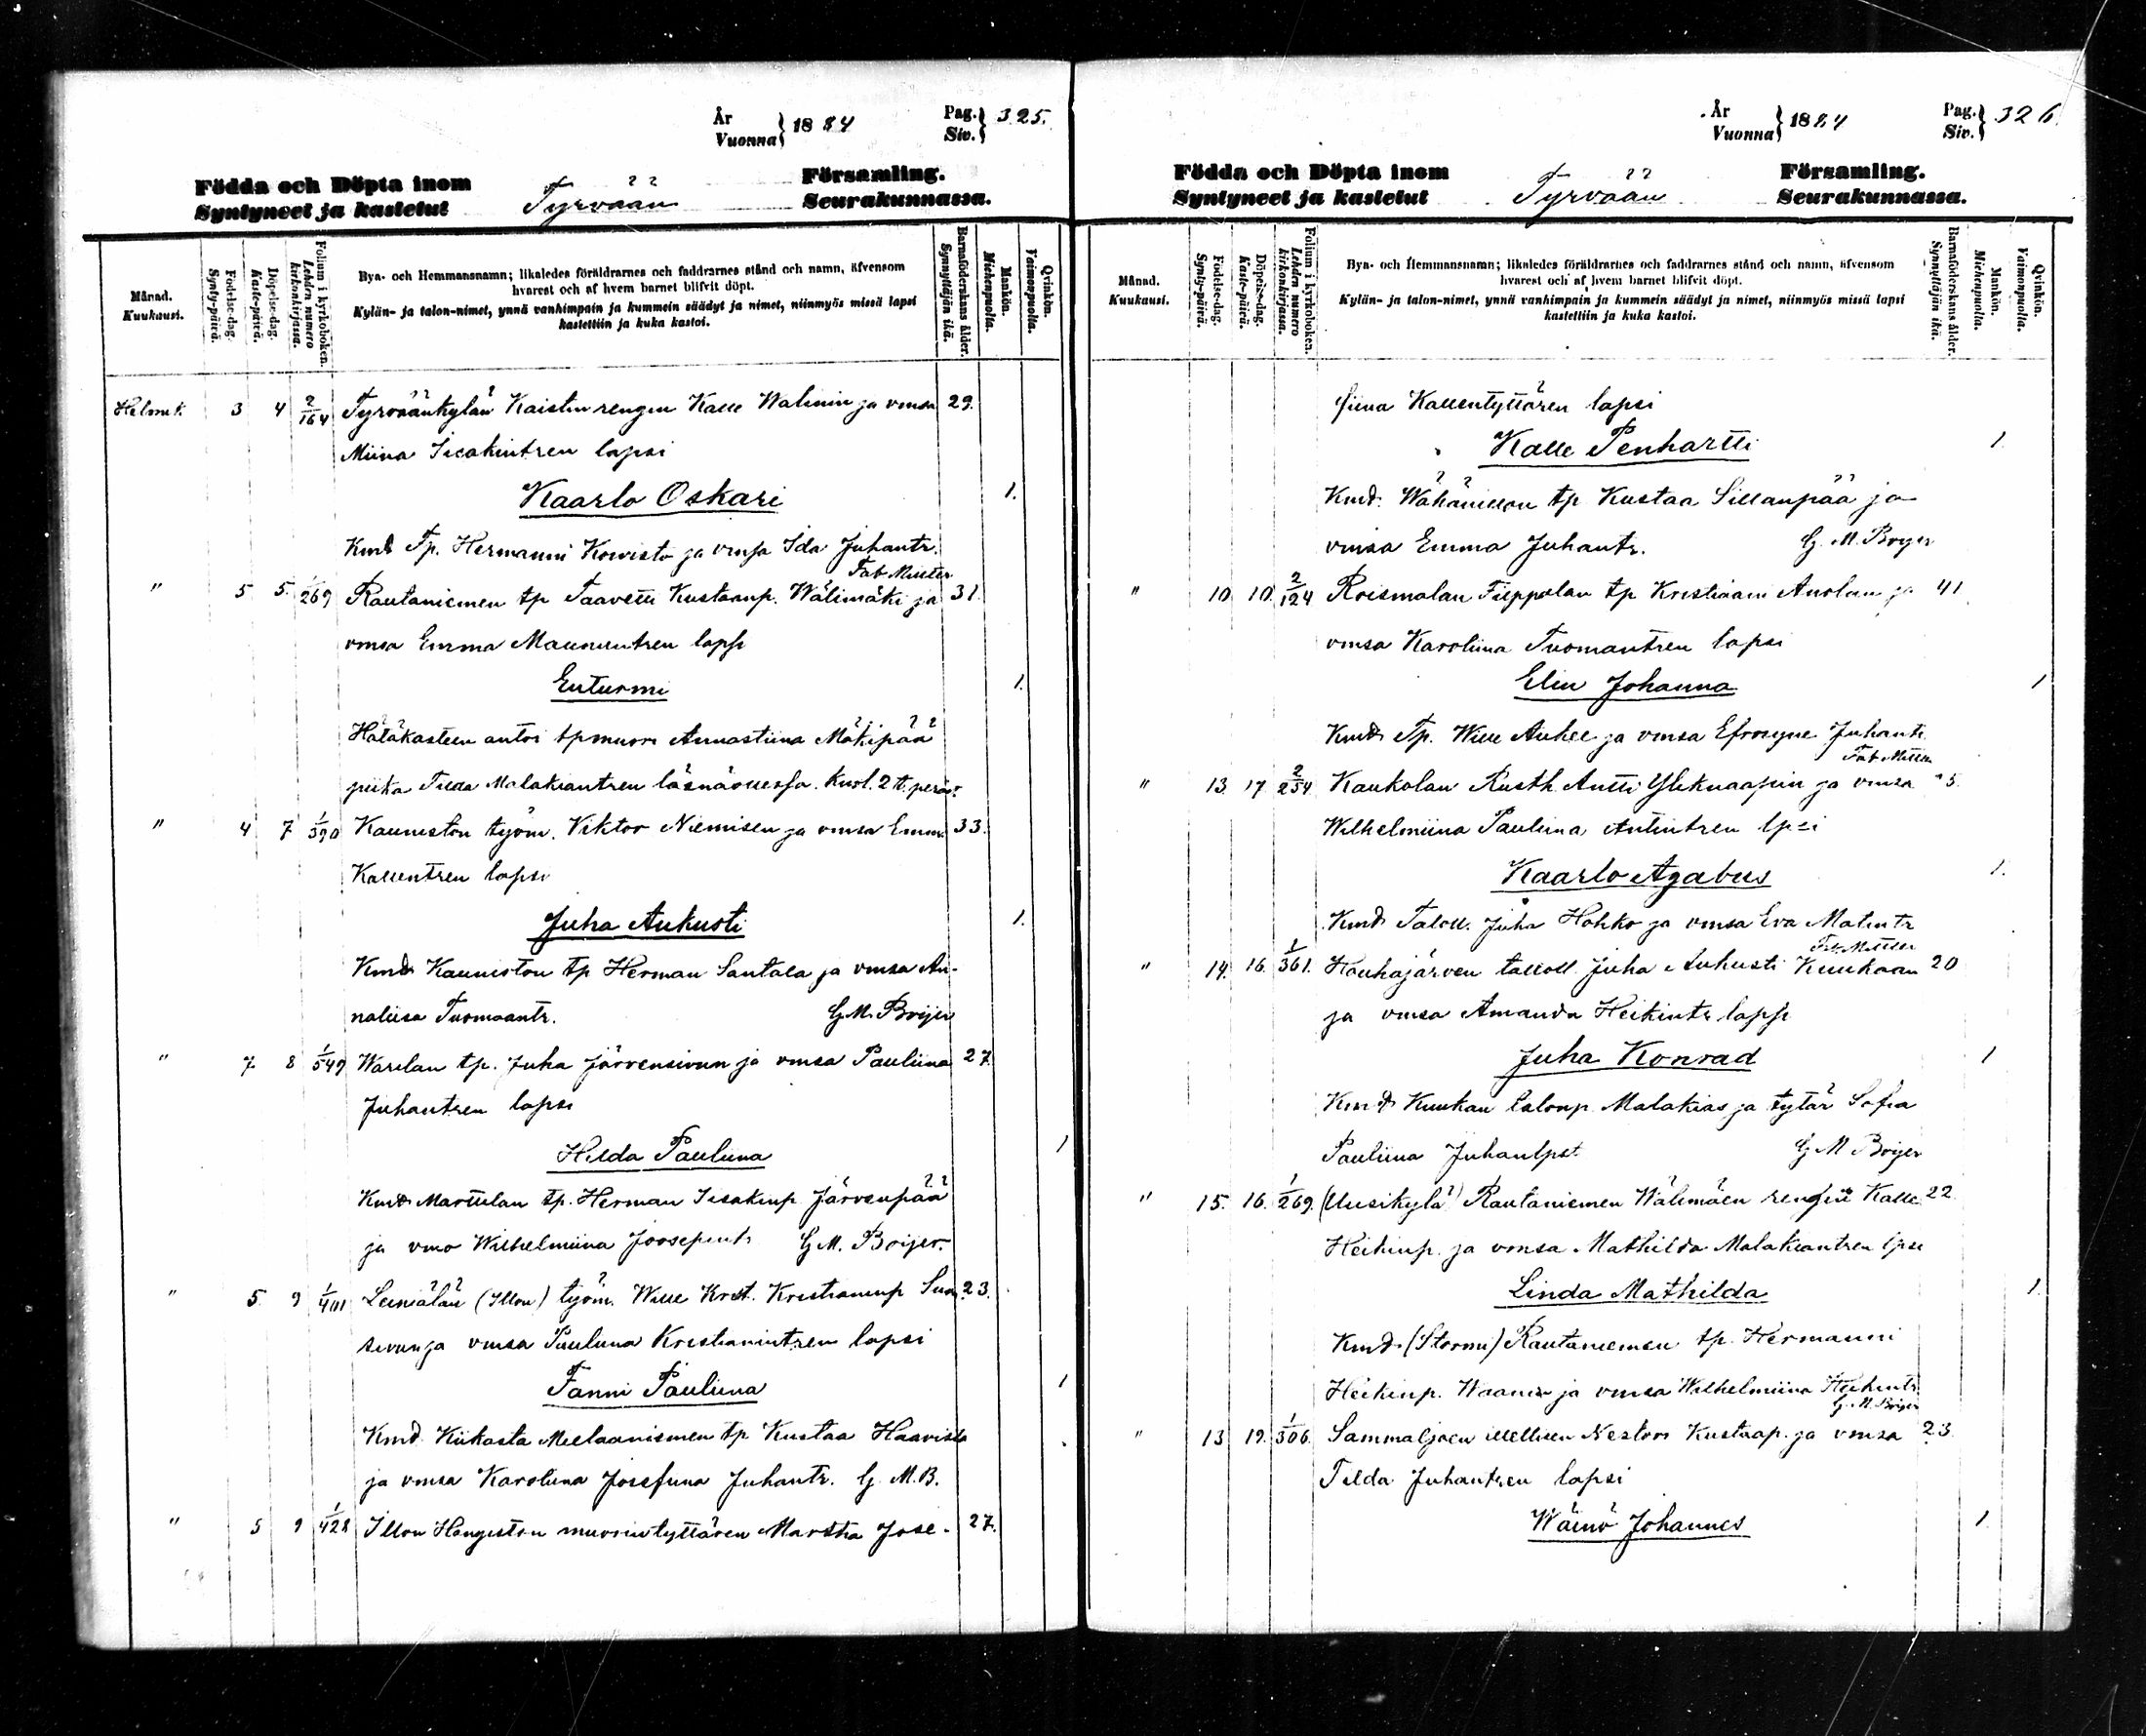 År
Vuonna } 1884 Pag. Siv. } 325.
Födda och Döpta inom
Syntyneet ja kastetut Tyrvään Församling.
Seurakunnassa.
Månad.
Kuukausi.
Födelse-dag.
Synty-päivä.
Döpelse-dag.
Kaste-päivä.
Folium i kyrkoboken.
Lehden numero kirkonkirjassa.
Bya- och Hemmansnamn; likaledes föräldrarnes och faddrarnes stånd och namn, äfvensom
hvarest och af hvem barnet blifvit döpt.
Kylän- ja talon-nimet, ynnä vanhimpain ja kummein säädyt ja nimet, niinmyös missä lapsi
kastettiin ja kuka kastoi.
Barnaföderskans ålder.
Synnyttäjän ikä.
Mankön.
Miehenpuolia.
Qvinkön.
Vaimonpuolia.
Helmik. 3 4 2/164 Tyrväänkylän Kaistin rengin Kalle Walinin ja vmsa 29.
Miina Isakintren lapsi
Kaarlo Oskari 1.
Kmd Tp. Hermanni Koivisto ja vmsa Ida Juhantr.
" 5 5. 1/269 Rautaniemen tp Taavetti Kustaanp. Wälimäki ja 31.
vmsa Emma Maununtren lapsi
Enturmi 1.
Hätäkasteen antoi tpmuori Annastiina Mäkipää
piika Tilda Malakiantren läsnäollessa. Knol. 2 t. peräst
" 4 7 1/390 Kauniston työm. Viktor Niemisen ja vmsa Emma 33.
Kallentren lapsi
Juha Aukusti 1.
Kmd Kauniston tp Herman Santala ja vmsa An-
naliisa Tuomaantr. G.M. Boijer
" 7 8 1/549 Warilan tp. Juha Järvensivun ja vmsa Pauliina 27
Juhantren lapsi
Hilda Pauliina 1
Kmd Marttilan tp. Herman Isakinp Järvenpää
ja vmo Wilhelmiina Joosepintr G.M. Boijer.
" 5 9 1/401 Leiniälän (Illon) työm. Wille Krst. Kristianinp Suo 23.
sivun ja vmsa Pauliina Kristianintren lapsi
Fanni Pauliina 1
Kmd. Kiikasta Meelaaniemen tp Kustaa Haavisto
ja vmsa Karoliina Josefiina Juhantr. G. M. B.
" 5 9 1/428 Illon Hongiston muorintyttären Martha Jose- 27.
År
Vuonna } 1884 Pag. Siv. } 326.
Födda och Döpta inom
Syntyneet ja kastetut Tyrvään Församling.
Seurakunnassa.
Månad.
Kuukausi.
Födelse-dag.
Synty-päivä.
Döpelse-dag.
Kaste-päivä.
Folium i kyrkoboken.
Lehden numero kirkonkirjassa.
Bya- och Hemmansnamn; likaledes föräldrarnes och faddrarnes stånd och namn, äfvensom
hvarest och af hvem barnet blifvit döpt.
Kylän- ja talon-nimet, ynnä vanhimpain ja kummein säädyt ja nimet, niinmyös missä lapsi
kastettiin ja kuka kastoi.
Barnaföderskans ålder.
Synnyttäjän ikä.
Mankön.
Miehenpuolia.
Qvinkön.
Vaimonpuolia.
fiina Kallentyttären lapsi
Kalle Penhartti 1.
Kmd. Wähänillon tp Kustaa Sillanpää ja
vmsa Emma Juhantr. G. M. Boijer
" 10 10 2/124 Roismalan Fiippolan tp Kristiaani Anolan ja 41
vmsa Karoliina Tuomantren lapsi
Elin Johanna 1
Kmd Tp. Wille Aukee ja vmsa Efrosyne Juhantr
" 13 17 2/254 Kaukolan Rusth. Antti Yliknaapin ja vmsa
Wilhelmiina Pauliina Antintren lpsi
Kaarlo Agabus 1.
Kmd Taloll. Juha Hohko ja vmsa Eva Matintr
" 14. 16. 1/361. Houhajärven taloll. Juha Aukusti Kuukaan 20
ja vmsa Amanda Heikintr lapsi
Juha Konrad 1
Kmd Kuukan talonp. Malakias ja tytär Sofia
Pauliina Juhanlpst. G M Boijer
" 15. 16. 1/269. (Uusikylä) Rautaniemen Wälimäen rengin Kalle 22
Heikinp. ja vmsa Mathilda Malakiantren lpsi
Linda Mathilda 1.
Kmd. (Stormi) Rautaniemen tp. Hermanni
Heikinp. Waania ja vmsa Wilhelmiina Heikintr.
G. M. Boijer
" 13 19. 1/306. Sammaljoen itellisen Nestori Kustaap. ja vmsa 23.
Tilda Juhantren lapsi
Wäinö Johannes 1.